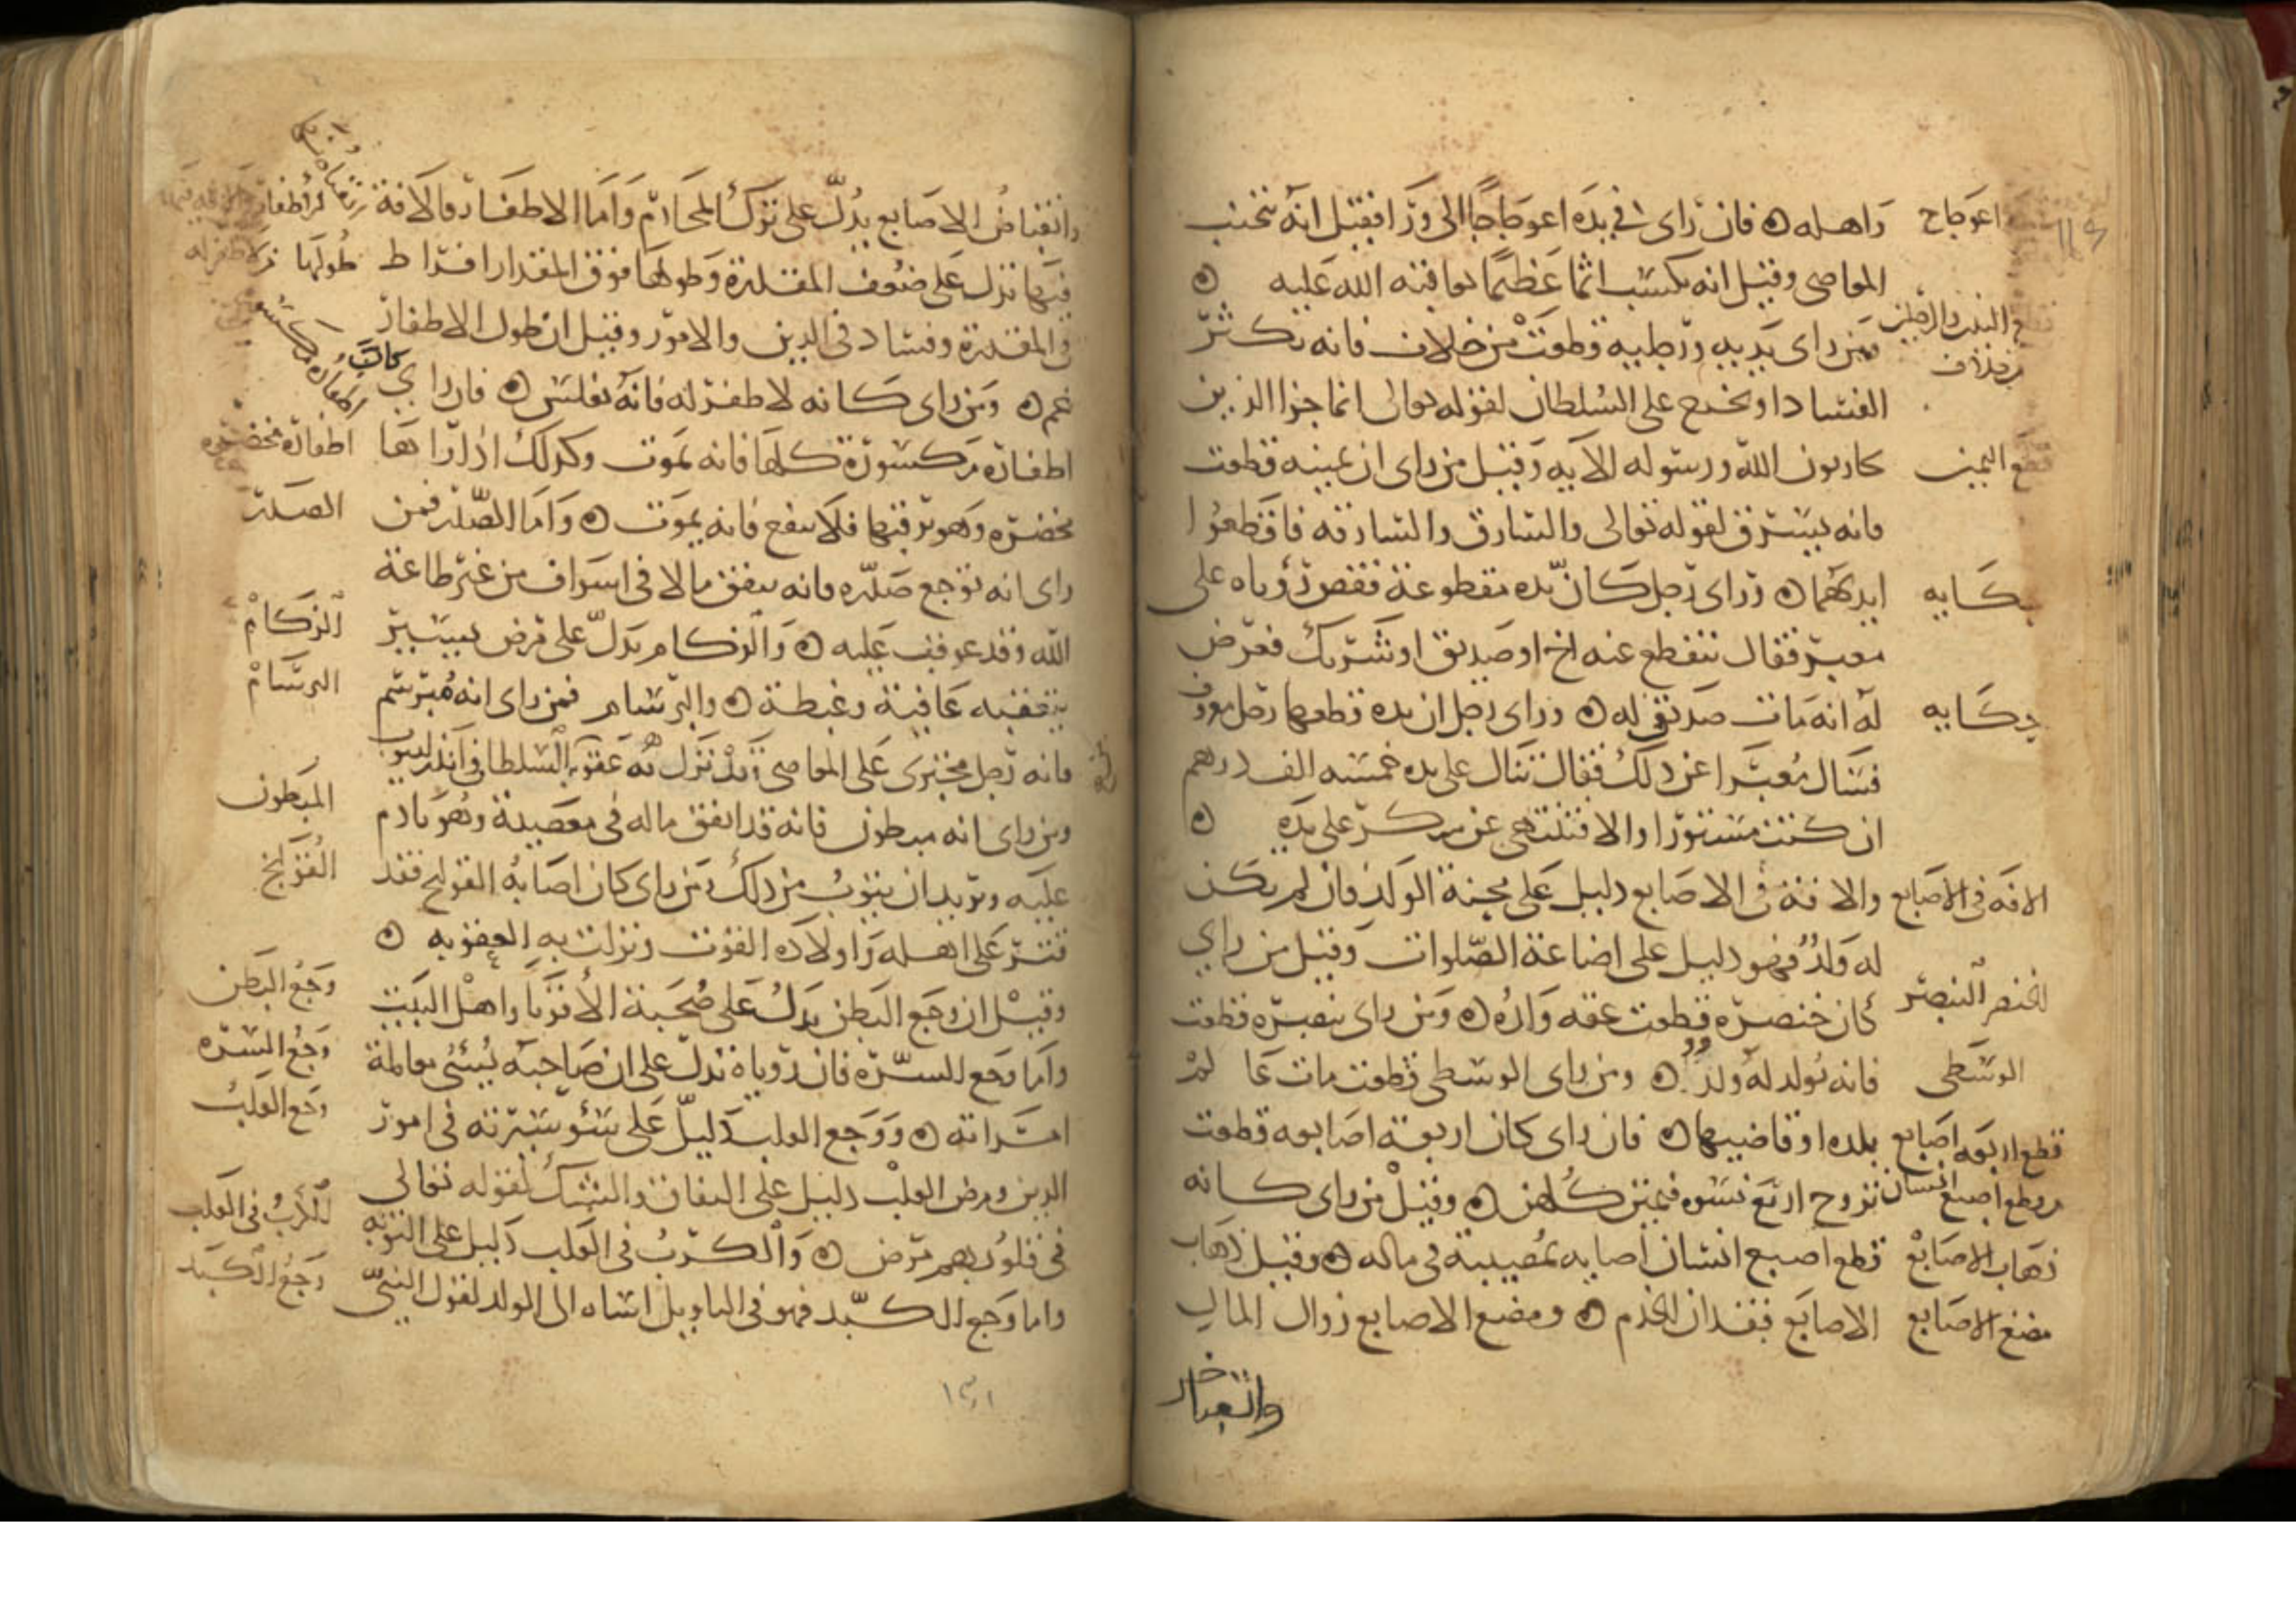 اعوجاج
واهله ۞ فان راى في يده اعوجاجا الى ورا فقيل انه يتجنب
المعاصى وقيل انه يكتسب اثما عظيما يعاقبه الله عليه ۞
قطع اليدين والرجلين من خلاف
ومن راى يديه ورجليه قطعت من خلاف فانه يكثر
الفساد او يخرج على السلطان لقوله تعالى انما جزا الذين
قطع اليمين
يحاربون الله ورسوله الايه وقيل من راى ان يمينه قطعت
فانه يسرق لقوله تعالى والسارق والسارقه فاقطعوا
حكايه
ايديهما ۞ وراى رجل كان يده مقطوعة فقص رؤياه على
معبر فقال ينقطع عنه اخ او صديق او شريك فعرض
حكايه
له انه مات صديق له ۞ وراى رجل ان يده قطعها رجل معروف
فسال معبرا عن ذلك فقال تنال على يده خمسه الف درهم
ان كنت مستورا والا فتنتهى عن منكر على يده ۞
الافه فى الاصابع
والافة فى الاصابع دليل على محنة الولد فان لم يكن
له ولد فهو دليل على اضاعة الصلوات وقيل من راي
الخنصر البنصر
كان خنصره قطعت عقه واده ۞ ومن راى بنصره قطعت
الوسطى
فانه يولد له ولد ۞ ومن راى الوسطى قطعت مات عالم
قطع اربعه اصابع
بلده او قاضيها ۞ فان راى كان اربعة اصابعه قطعت
قطع اصبع انسان
تزوج اربع نسوه فيمتن كلهن ۞ وقيل من راى كانه
ذهاب الاصابع
قطع اصبع انسان اصابه بمصيبة فى ماله ۞ وقيل ذهاب
مضغ الاصابع
الاصابع فقدان الخدم ۞ ومضع الاصابع زوال المال
وانقباض
وانقباض الاصابع يدل على ترك المحارم واما الاظفار فالافة
فيها تدل على ضعف المقدرة وطولها فوق المقدار افراط
طولها
فى المقدرة وفساد فى الدين والامور وقيل ان طول الاظفار
غم ۞ ومن راى كانه لا ظفر له فانه يفلس ۞ فان راي كانت
اظفاره مكسورة كلها فانه يموت وكذلك اذا راها
اظفاره مخضره
مخضره وهو يرقيها فلا ينفع فانه يموت ۞ واما الصدر فمن
الصدر
راى انه توجع صدره فانه ينفق مالا فى اسراف من غير طاعة
الله وقد عوقب عليه ۞ والزكام يدل على مرض يسير
الزكام
يتعقبه عافية وغبطة ۞ والبرسام فمن راى انه مبرسم
البرسام
فانه رجل مجترى على المعاصى وقد نزل به عقوبة السلطان
ومن راى انه مبطون فانه قد انفق ماله فى معصية وهو نادم
المبطون
عليه ويريد ان يتوب من ذلك ومن راى كان اصابه القولنج فقد
القولنج
قتر على اهله واولاده القوت ونزلت به العقوبه ۞
وقيل ان وجع البطن يدل على صحبة الاقربا واهل البيت
وجع البطن
واما وجع السره فان روياه تدل على ان صاحبه يسئ معاملة
وجع السره
امراته ۞ ووجع القلب دليل على سؤ سيرته فى امور
وجع القلب
الدين ومرض القلب دليل على النفاق والشك لقوله تعالي
فى قلوبهم مرض ۞ والكرب فى القلب دليل على التوبه
الكرب فى القلب
واما وجع الكبد فهو فى التاويل اساه الى الولد لقول النبي
وجع الكبد